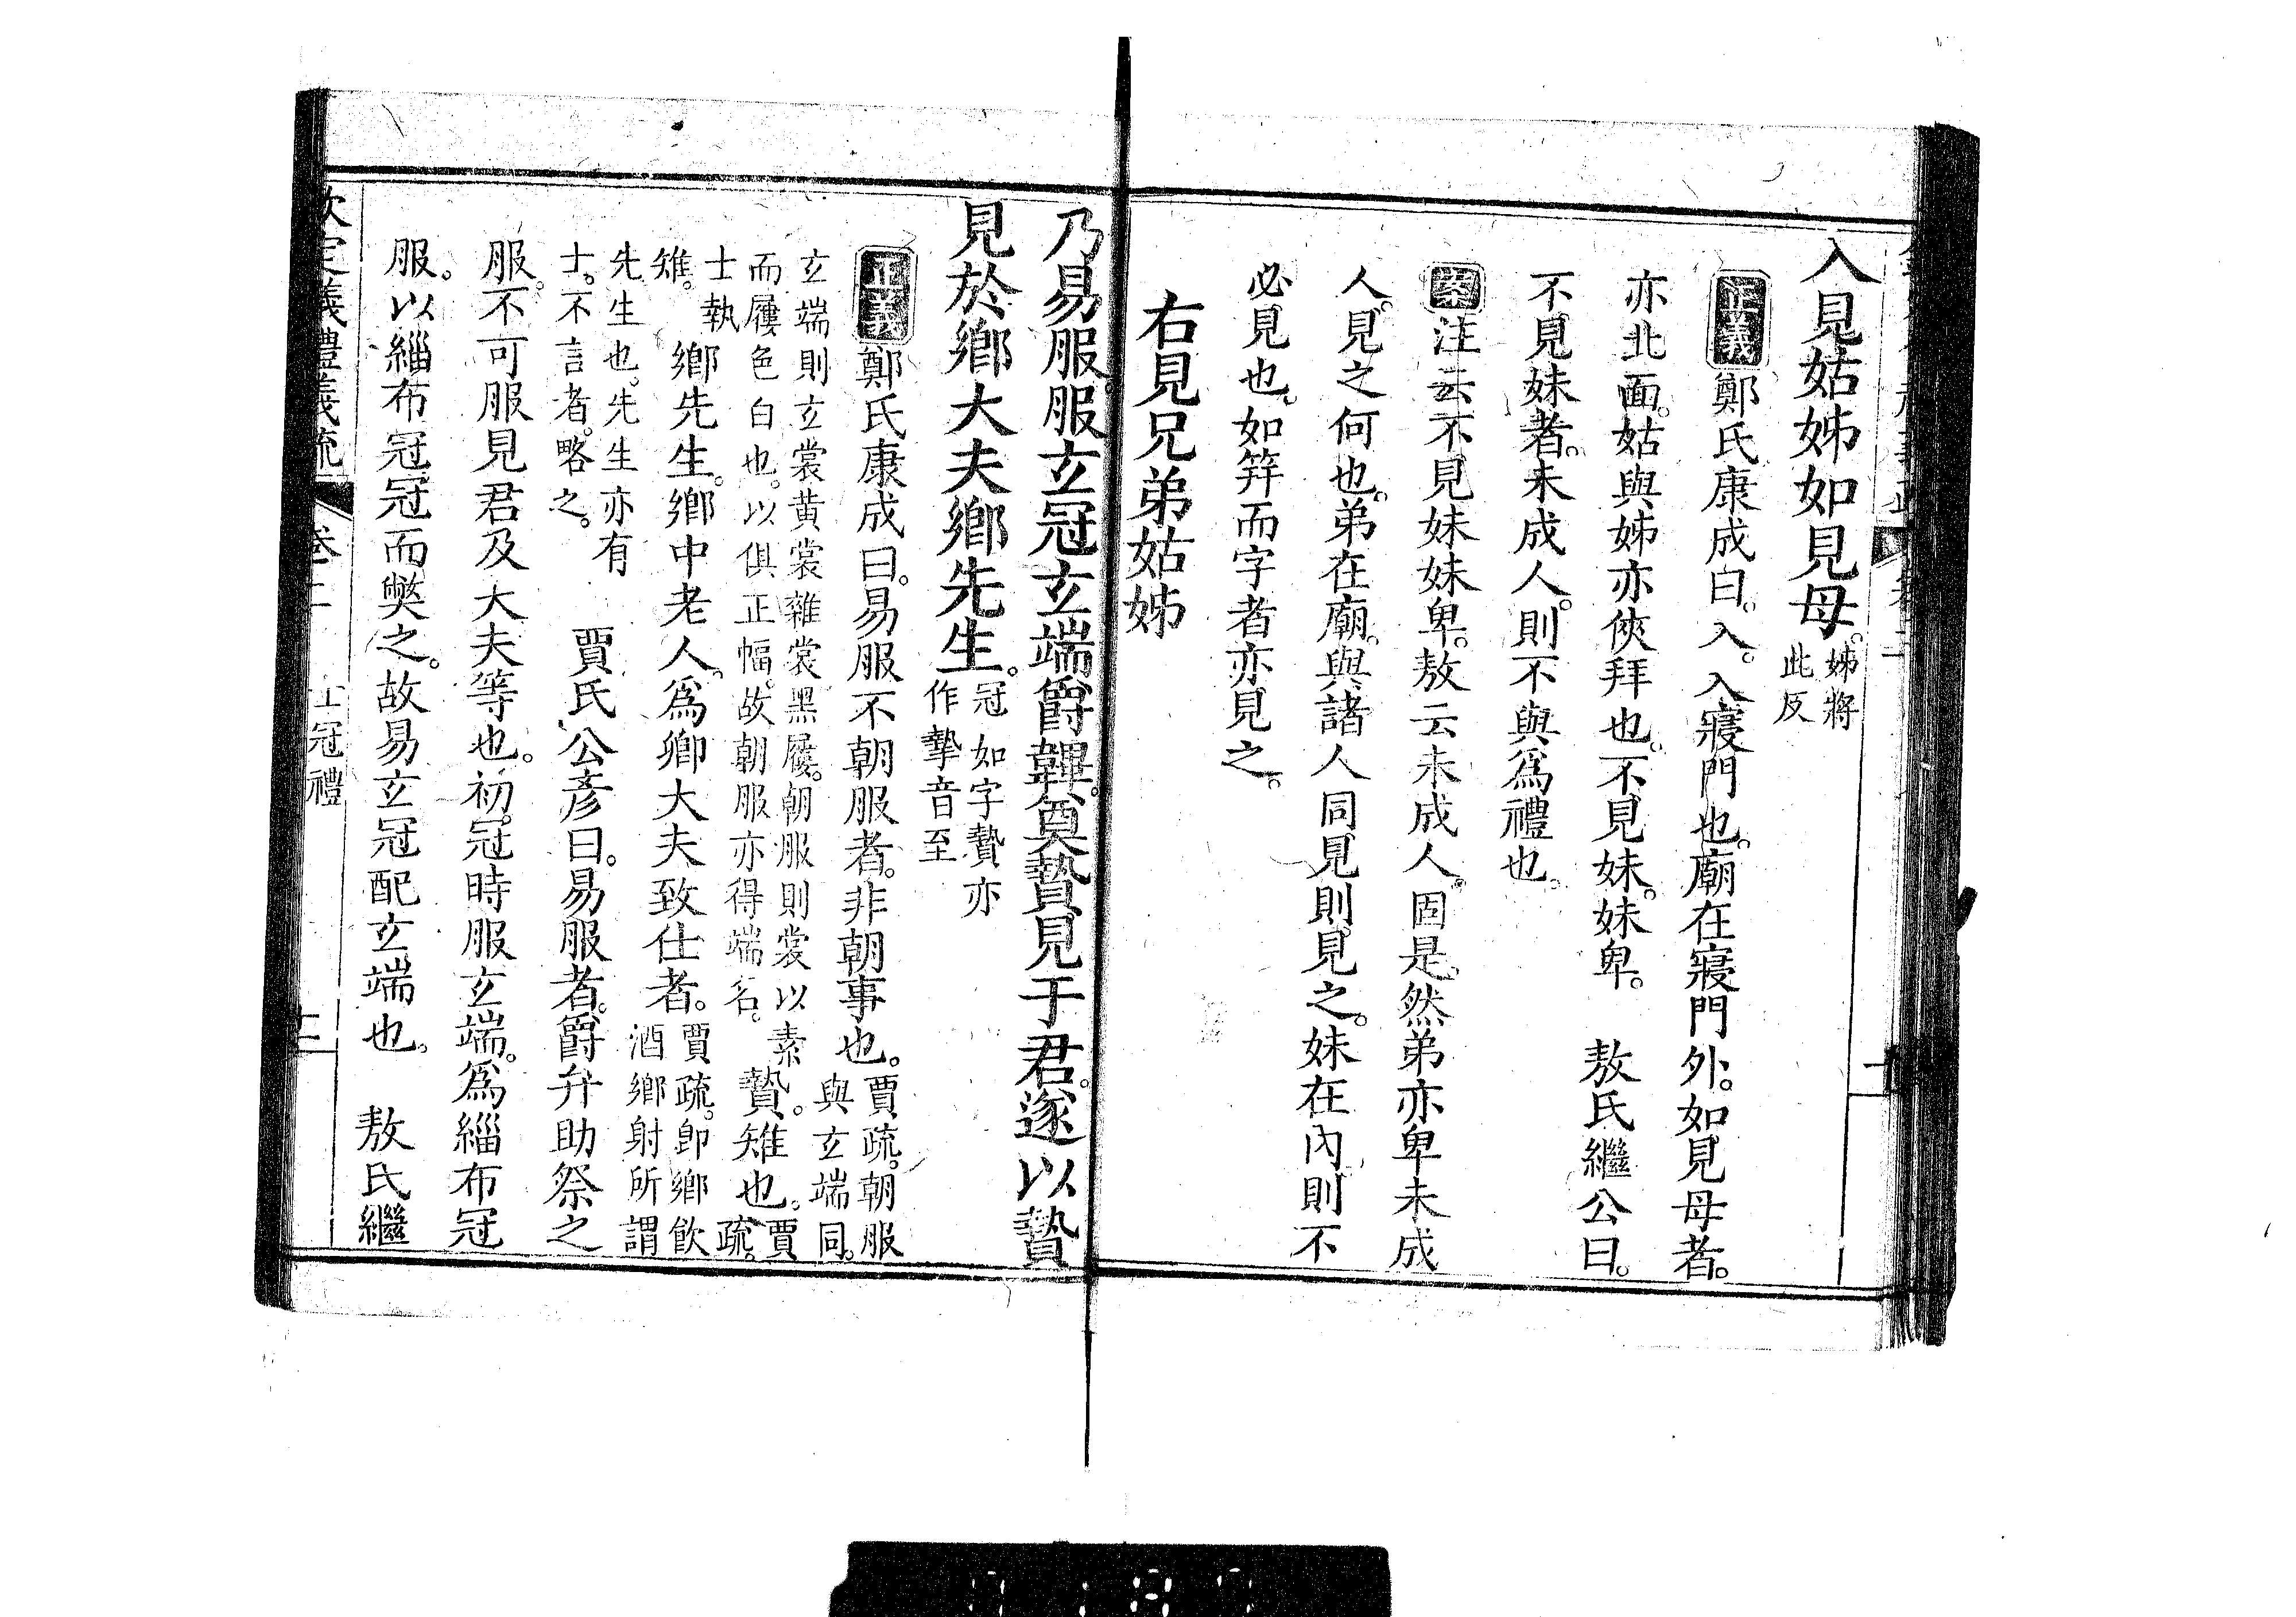 入見姑姊如見母。姊將
此反
正義鄭氏康成曰。入。入寢門也。廟在寢門外。如見母者。
亦北面。姑與姊亦俠拜也。不見妹。妹卑。　敖氏繼公曰。
不見妹者。未成人。則不與爲禮也。
案注云不見妹妹卑。敖云未成人。固是。然弟亦卑未成
人。見之何也。弟在廟。與諸人同見則見之。妹在內則不
必見也。如笄而字者亦見之。
右見兄弟姑姊
乃易服。服玄冠玄端爵韠。奠贄見于君。遂以贄
見於鄉大夫鄉先生。冠如字贄亦
作摯音至
正義鄭氏康成曰。易服不朝服者。非朝事也。賈疏。朝服
與玄端同。
玄端則玄裳黄裳雜裳黑屨。朝服則裳以素
而屨色白也。以俱正幅。故朝服亦得端名。贄。雉也。賈
疏。
士執
雉。鄉先生。鄉中老人。爲卿大夫致仕者。賈疏。卽鄉飲
酒鄉射所謂
先生也。先生亦有
士。不言者。略之。　賈氏公彥曰。易服者。爵弁助祭之
服。不可服見君及大夫等也。初。冠時服玄端。爲緇布冠
服。以緇布冠冠而獘之。故易玄冠配玄端也。　敖氏繼
欽定義禮義疏　卷二　士冠禮